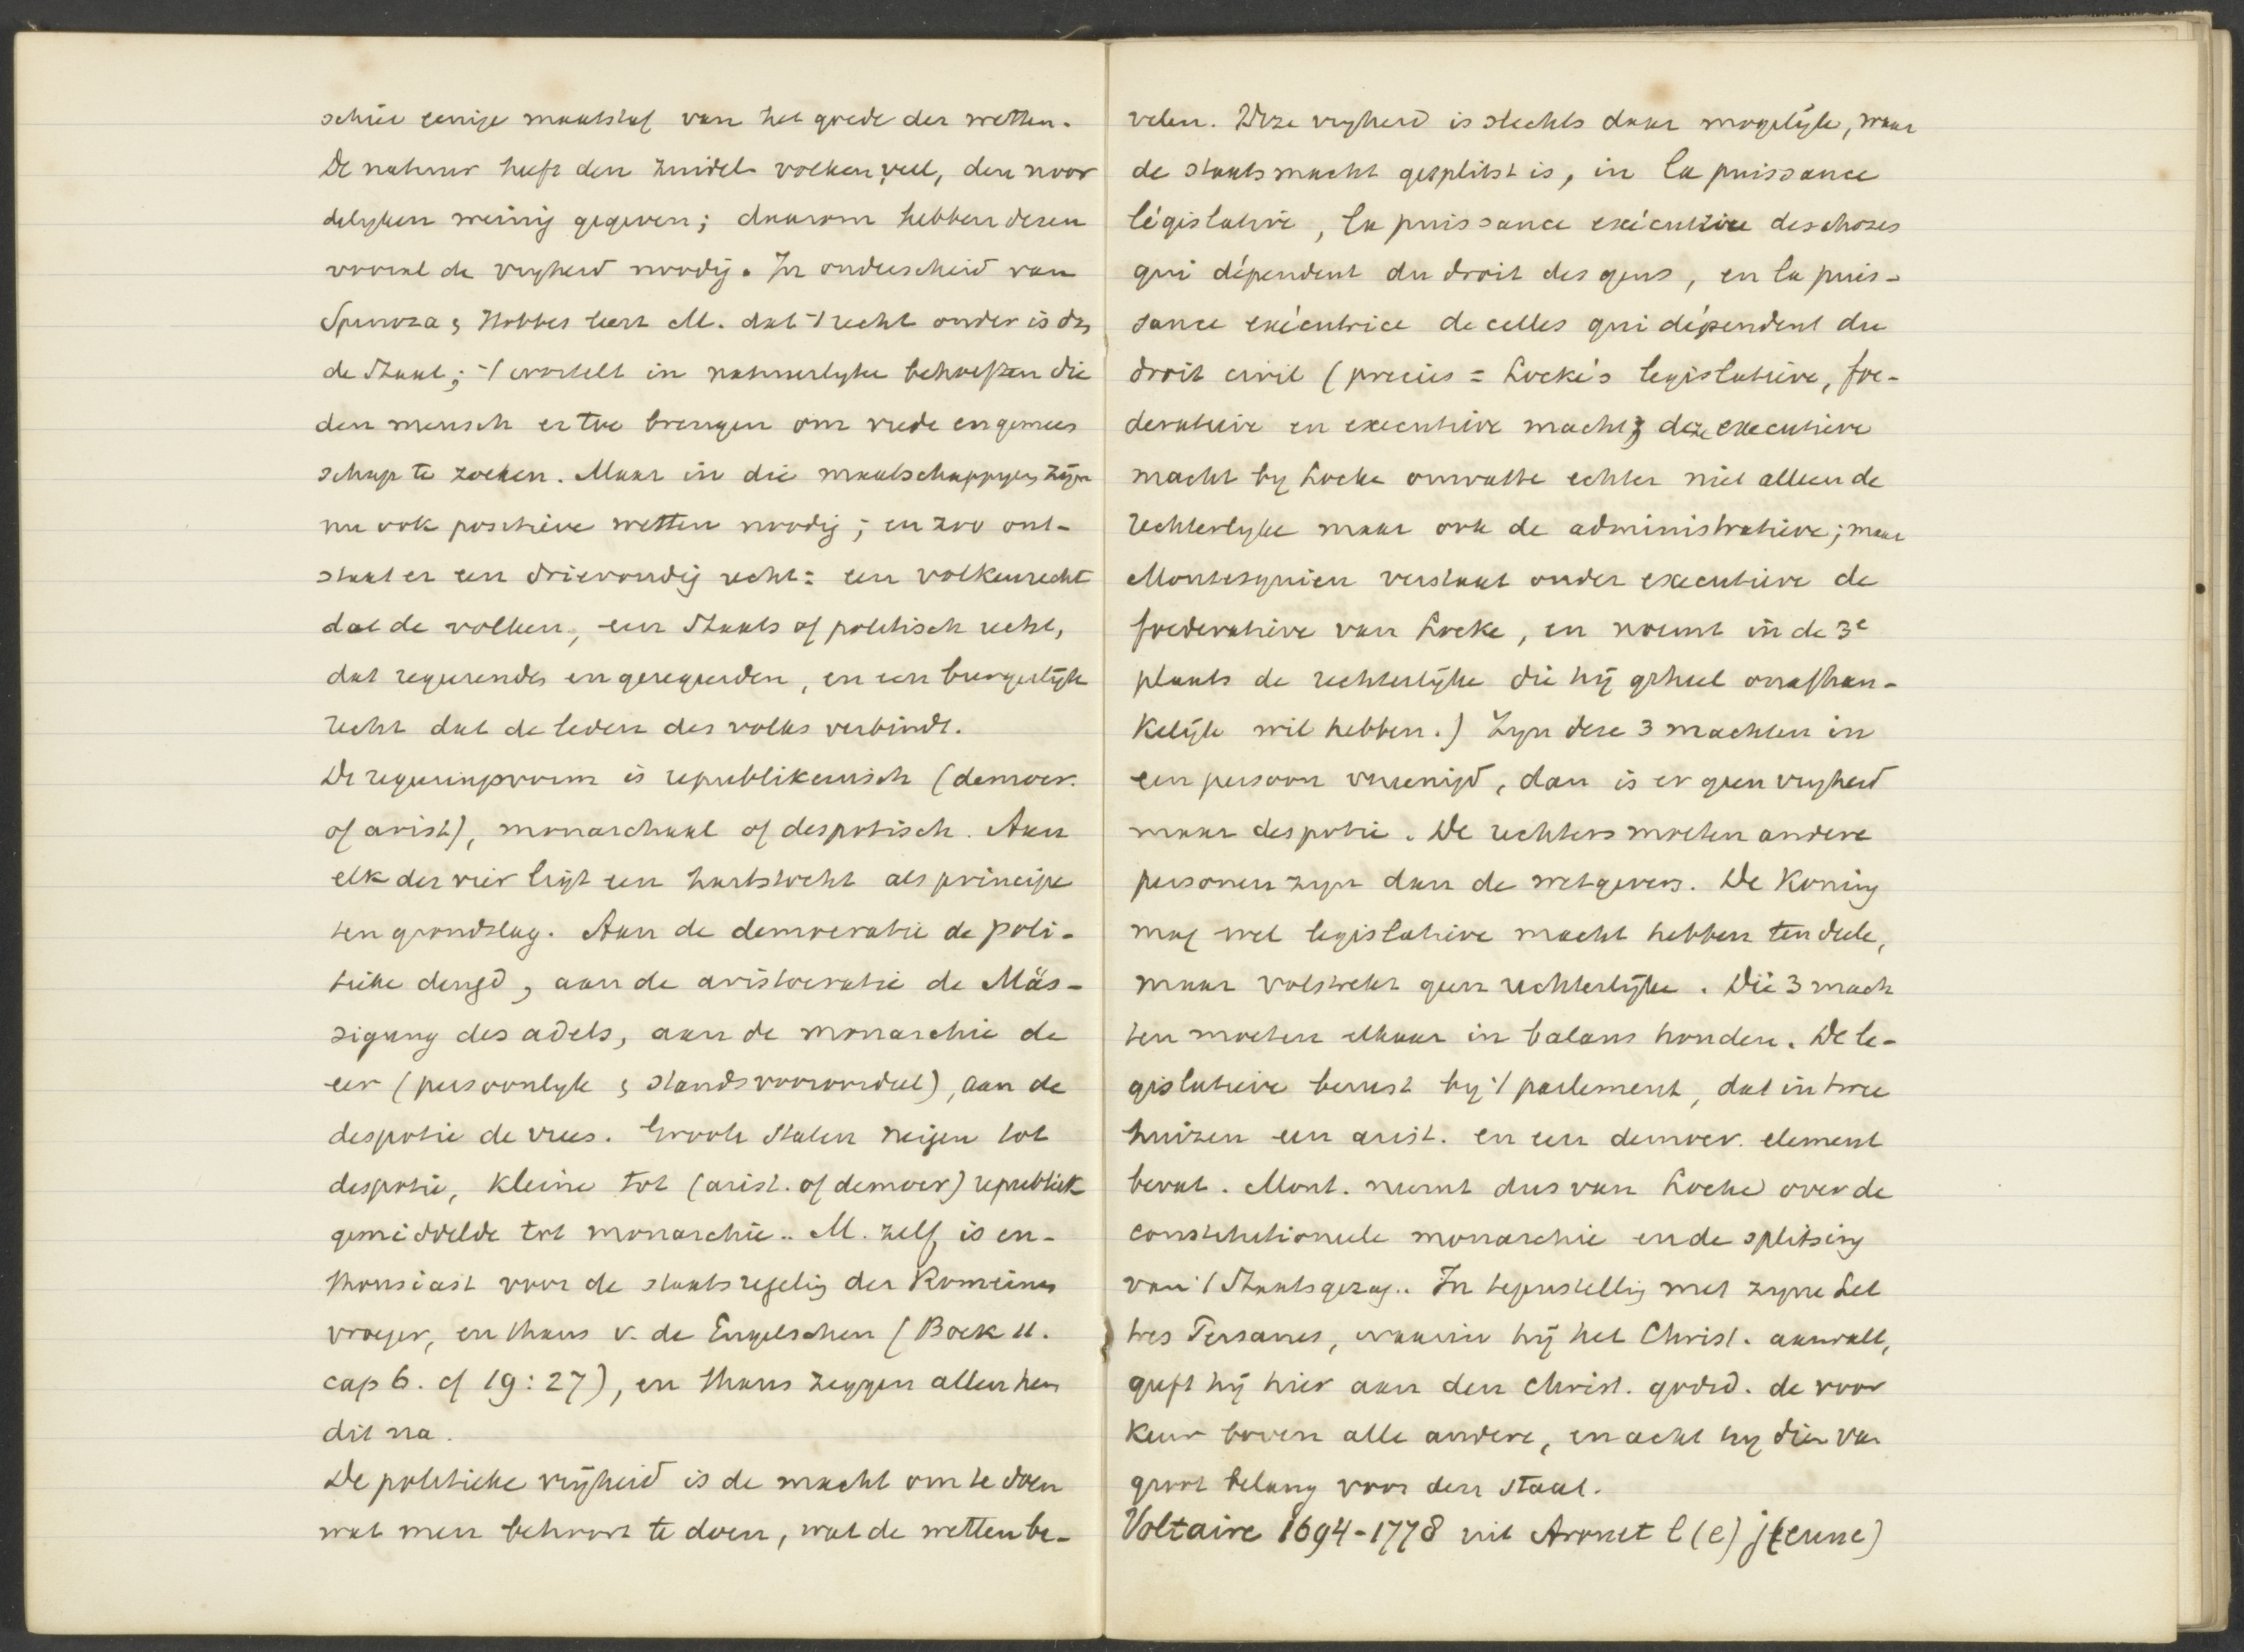 schier eenige maatstaf van het goede der wetten.
De natuur heeft den zuidel. volken veel, den noor
delyken weinig gegeven; daarom hebben dezen
vooral de vryheid noodig. In onderscheid van
Spinoza & Hobbes leert M. dat 't recht ouder is dan
de Staat; 't wortelt in natuurlyke behoeften die
den mensch er toe brengen om vrede en gemeen
schap te zoeken. Maar in die maatschappyen zijn
nu ook positieve wetten noodig; en zoo ont-
staat er een drievoudig recht: een volkenrecht
dat de volken, een Staats of politisch recht,
dat regeerenden en geregeerden, en een burgerlijk
recht dat de leden des volks verbindt.
De regeeringsvorm is republikeinsch (democr.
of arist), monarchaal of despotisch. Aan
elk der vier ligt een hartstocht als principe
ten grondslag. Aan de democratie de poli-
tieke deugd, aan de aristocratie de Mäs-
sigung des adels, aan de monarchie de
eer (persoonlyk & standsvooroordeel), aan de
despotie de vrees. Groote Staten neigen tot
despotie, kleine tot (arist. of democr) republiek
gemiddelde tot monarchie.. M. zelf is en-
thousiast voor de staatsregeling der Romeinen
vroeger, en thans v. de Engelschen (Boek 11.
cap 6. cf 19:27), en thans zeggen allen hem
dit na.
De politieke vrijheid is de macht om te doen
wat men behoort te doen, wat de wetten be-
velen. Deze vryheid is slechts daar mogelijk, waar
de staatsmacht gesplitst is, in la puissance
législative, la puissance exécutrice des choses
qui dépendent du droit des gens, en la puis-
sance exécutrice de celles qui dépendent du
droit civil (precies = Locke's legislatieve, foe-
deratieve en executieve macht; deze executieve
macht by Locke omvatte echter niet alleen de
rechterlyke maar ook de administratieve; maar
Montesquieu verstaat onder executieve de
foederatieve van Locke, en noemt in de 3e
plaats de rechterlijke die hij geheel onafhan-
kelijk wil hebben.) Zyn deze 3 machten in
een persoon vereenigd, dan is er geen vryheid
maar despotie. De rechters moeten andere
personen zyn dan de wetgevers. De Koning
mag wel legislatieve macht hebben ten deele,
maar volstrekt geen rechterlijke. Die 3 mach
ten moeten elkaar in balans houden. De le-
gislatieve berust by 't parlement, dat in twee
huizen een arist. en een democr. element
bevat. Mont. neemt dus van Locke over de
constitutioneele monarchie en de splitsing
van 't Staatsgezag.. In tegenstelling met zyne Let
tres Persanes, waarin hij het Christ. aanvalt,
geeft hij hier aan den Christ. godsd. de voor
keur boven alle andere, en acht hy dien van
groot belang voor den Staat.
Voltaire 1694-1778 uit Arouet l(e) j(eune)